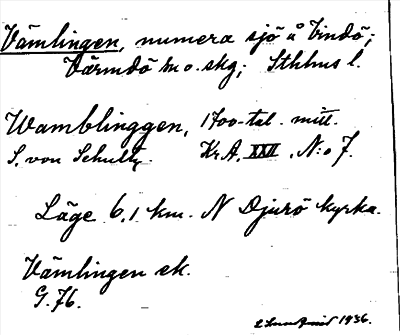 Vämlingen, numera sjö å Vindö;
Värmdö sn o. skg; Sthlms l.
Wamblinggen, 1700-tal. mitt.
S. von Schultz. Kr.A. XXVI. N:o 7.
Läge 6,1 km. N Djurö kyrka.
Vämlingen ek.
G. 76.
1936.